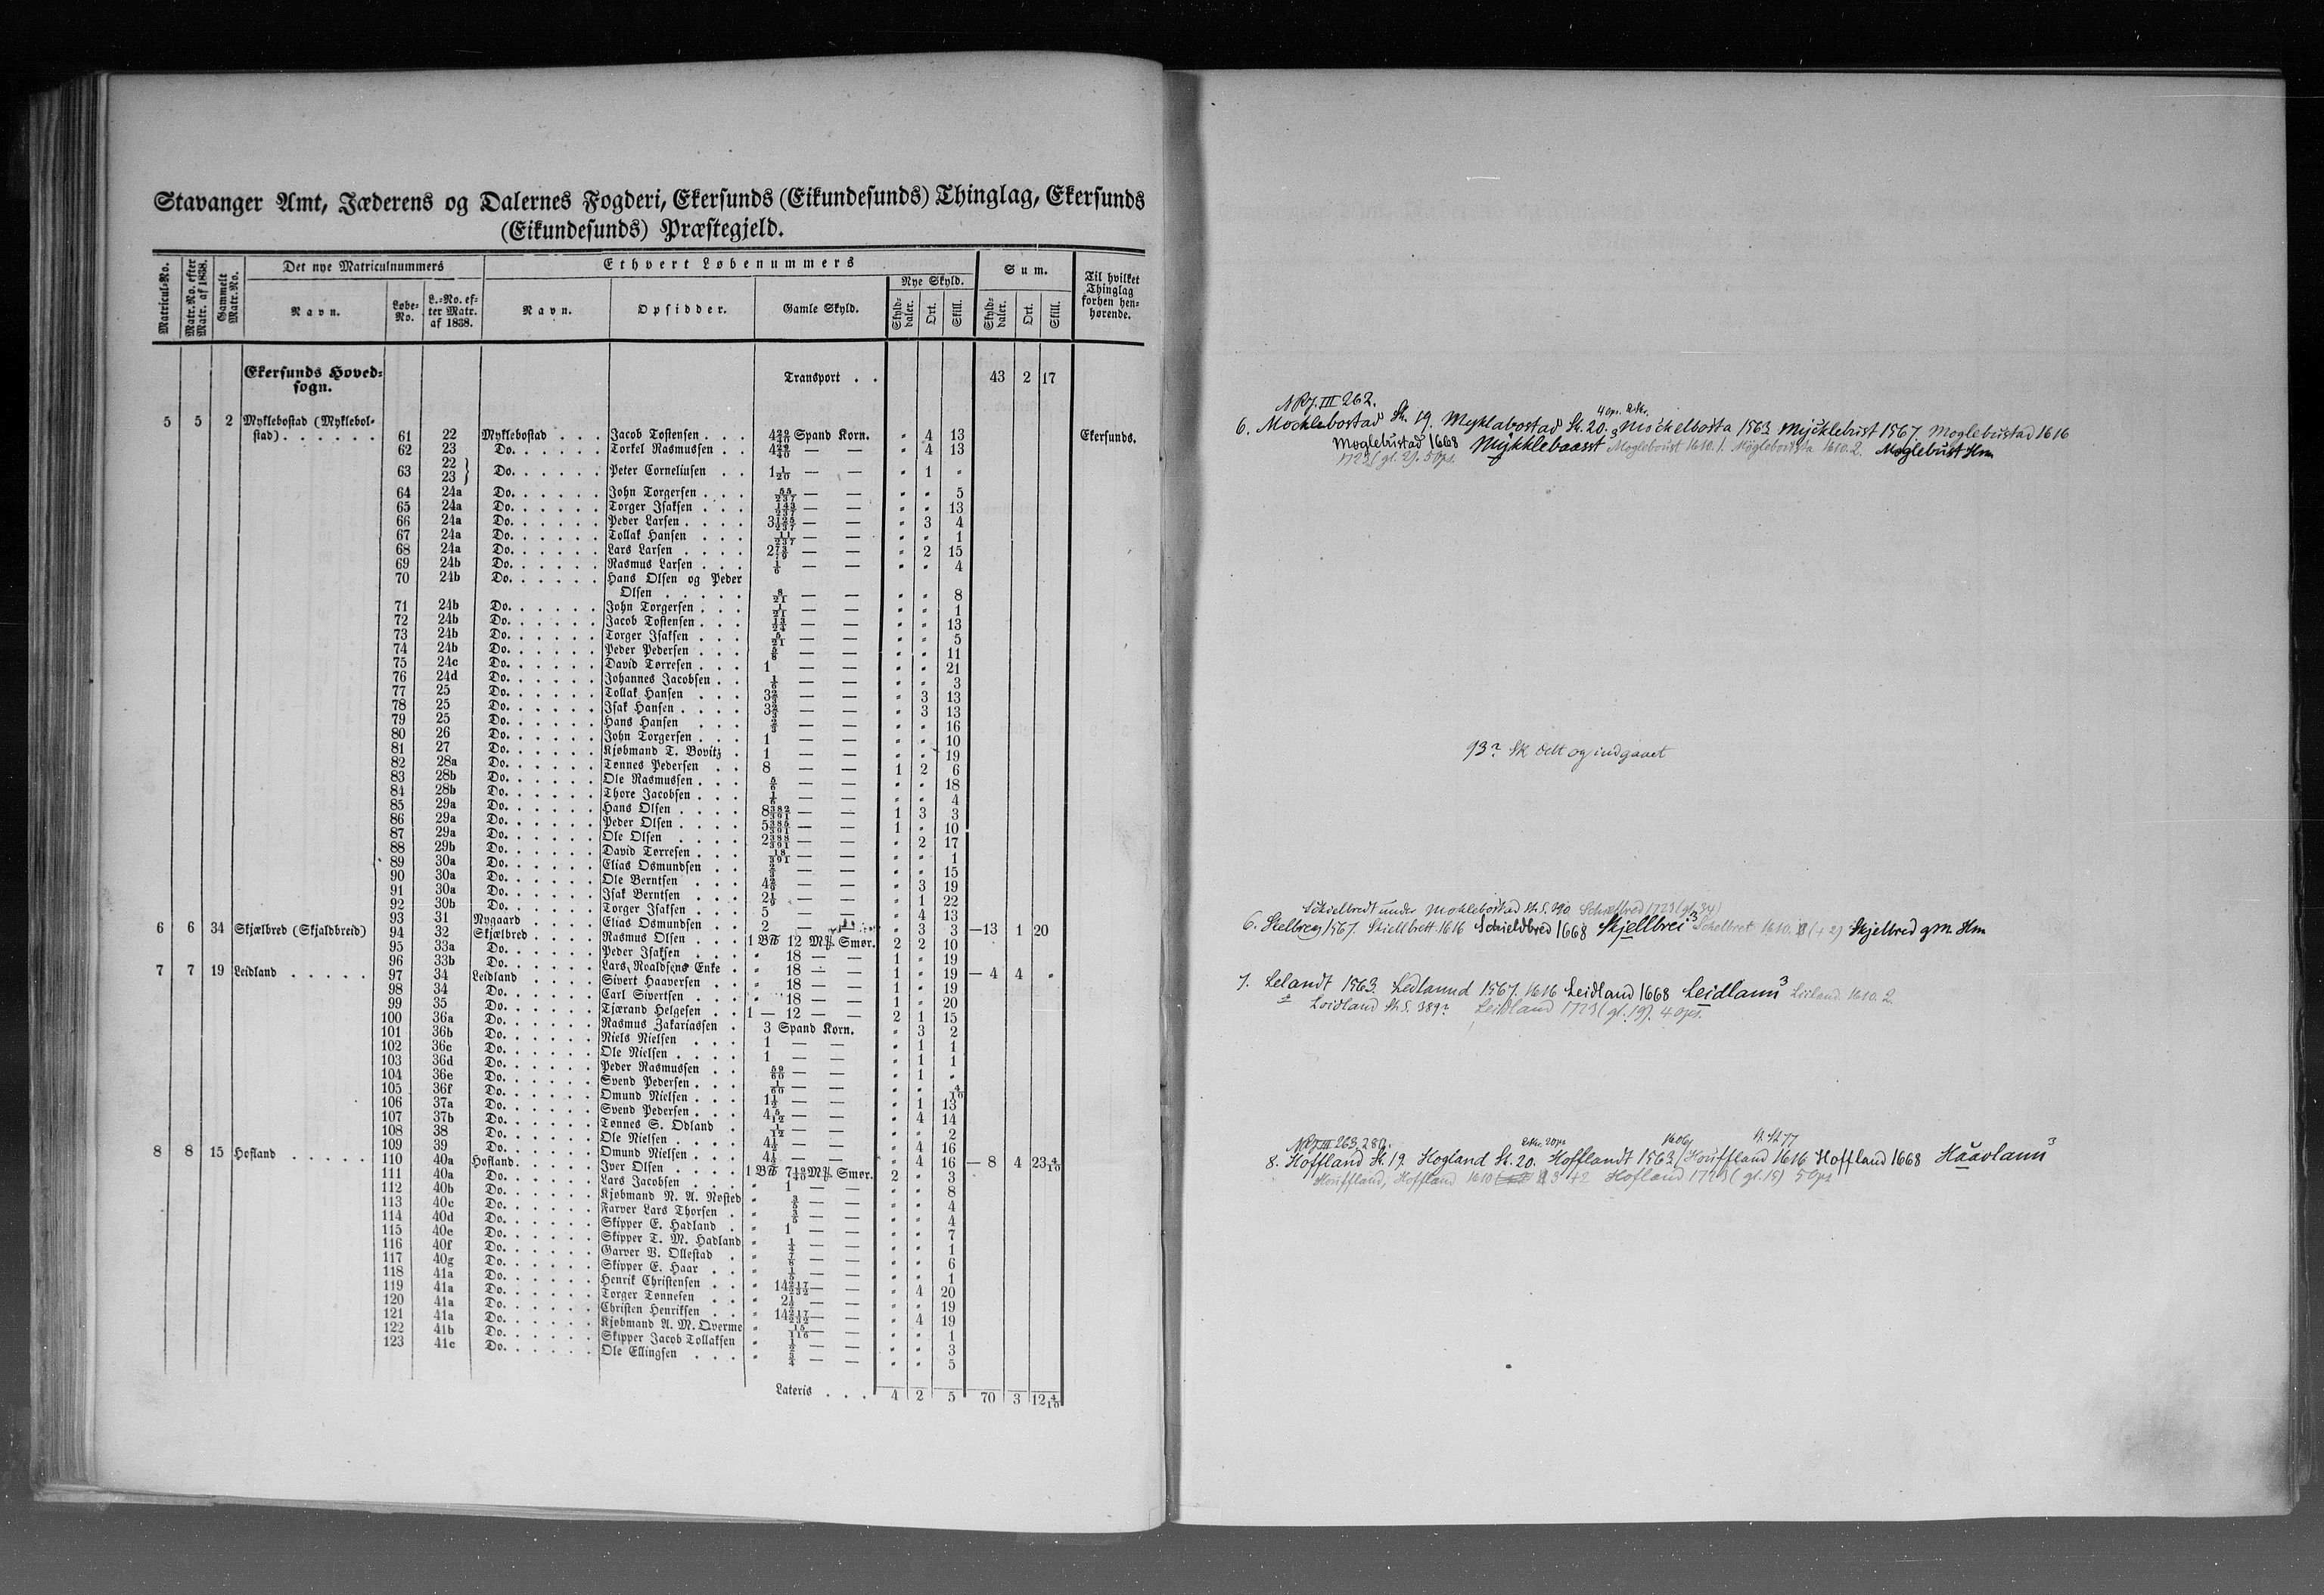 Stavanger Amt, Jæderens og Dalernes Fogderi, Ekersunds (Eikundesunds) Thinglag, Ekersunds
(Eikundesunds) Præstegjeld.
Matricul-No. | Matr.-No. efter Matr. af 1838. | Gammelt Matr.-No. | Det nye Matriculnummers | Ethvert Løbenummers | Sum. | Til hvilket Thinglag forhen henhørende.
Navn. | Løbe-No. | L.-No. efter Matr. af 1838. | Navn. | Opsidder. | Gamle Skyld. | Nye Skyld. | Skylddaler. | Ort. | Skill. | Skylddaler. | Ort. | Skill.
Ekersunds Hovedsogn. Transport . . 43 2 17
5 5 2 Myklebostad (Myklebol-
stad) . . . . . . 61 22 Myklebostad . . . Jacob Tostensen . . . 4 29/40 Spand Korn. " 4 13 Ekersunds.
62 23 Do. . . . . . Torkel Rasmussen . . 4 29/40 — — " 4 13
63 22 } 23 } Do. . . . . . Peter Corneliusen . . 1 1/20 — — " 1 "
64 24a Do. . . . . . John Torgersen . . . 55/237 — — " " 5
65 24a Do. . . . . . Torger Isaksen . . . 143/237 — — " " 13
66 24a Do. . . . . . Peder Larsen . . . . 3 125/237 — — " 3 4
67 24a Do. . . . . . Tollak Hansen . . . 11/237 — — " " 1
68 24a Do. . . . . . Lars Larsen . . . . 2 73/79 — — " 2 15
69 24b Do. . . . . . Rasmus Larsen . . . 1/6 — — " " 4
70 24b Do. . . . . . Hans Olsen og Peder
Olsen . . . . . 8/21 — — " " 8
71 24b Do. . . . . . John Torgersen . . . 1/21 — — " " 1
72 24b Do. . . . . . Jacob Tostensen . . . 13/24 — — " " 13
73 24b Do. . . . . . Torger Isaksen . . . 5/21 — — " " 5
74 24b Do. . . . . . Peder Pedersen . . . 5/8 — — " " 11
75 24c Do. . . . . . David Tørresen . . . 1 — — " " 21
76 24d Do. . . . . . Johannes Jacobsen . . 1/6 — — " " 3
77 25 Do. . . . . . Tollak Hansen . . . 3 2/3 — — " 3 13
78 25 Do. . . . . . Isak Hansen . . . . 3 2/3 — — " 3 13
79 25 Do. . . . . . Hans Hansen . . . 2/3 — — " " 16
80 26 Do. . . . . . John Torgersen . . . 1 — — " " 10
81 27 Do. . . . . . Kjøbmand T. Bovitz . 1 — — " " 19
82 28a Do. . . . . . Tønnes Pedersen . . 8 — — 1 2 6
83 28b Do. . . . . . Ole Rasmussen . . . 5/6 — — " " 18
84 28b Do. . . . . . Thore Jacobsen . . . 1/6 — — " " 4
85 29a Do. . . . . . Hans Olsen . . . . 8 382/391 — — 1 3 3
86 29a Do. . . . . . Peder Olsen . . . . 5 385/391 — — 1 " 10
87 29a Do. . . . . . Ole Olsen . . . . 2 388/391 — — " 2 17
88 29b Do. . . . . . David Tørresen . . . 18/391 — — " " 1
89 30a Do. . . . . . Elias Osmundsen . . 2/3 — — " " 15
90 30a Do. . . . . . Ole Berntsen . . . 4 2/9 — — " 3 19
91 30a Do. . . . . . Isak Berntsen . . . 2 1/9 — — " 1 22
92 30b Do. . . . . . Torger Isaksen . . . 5 — — " 4 13
93 31 Nygaard . . . . Elias Osmundsen . . 2 — — " 3 3 —13 1 20
6 6 34 Skjælbred (Skjaldbreid) 94 32 Skjælbred . . . . Rasmus Olsen . . . 1 B℔ 12 M℔ Smør. 2 2 10
95 33a Do. . . . . . Peder Isaksen . . . " 18 — — 1 " 19
96 33b Do. . . . . . Lars Roaldsens Enke . " 18 — — 1 " 19 — 4 4 "
7 7 19 Leidland . . . . . 97 34 Leidland . . . . Sivert Haaversen . . " 18 — — 1 " 19
98 34 Do. . . . . . Carl Sivertsen . . . " 18 — — 1 " 20
99 35 Do. . . . . . Tjærand Helgesen . . 1 — 12 — — 2 1 15
100 36a Do. . . . . . Rasmus Zakariassen . 3 Spand Korn. " 3 2
101 36b Do. . . . . . Niels Nielsen . . . 1 — — " 1 1
102 36c Do. . . . . . Ole Nielsen . . . . 1 — — " 1 1
103 36d Do. . . . . . Peder Rasmussen . . 59/60 — — " 1 "
104 36e Do. . . . . . Svend Pedersen . . . 1/60 — — " " 4/10
105 36f Do. . . . . . Omund Nielsen . . . 1 1/2 — — " 1 13
106 37a Do. . . . . . Svend Pedersen . . . 4 5/12 — — " 4 14
107 37b Do. . . . . . Tønnes S. Odland . 1/12 — — " " 2
108 38 Do. . . . . . Ole Nielsen . . . . 4 1/2 — — " 4 16
109 39 Do. . . . . . Omund Nielsen . . . 4 1/2 — — " 4 16 — 8 4 23 4/10
8 8 15 Hofland . . . . . 110 40a Hofland . . . . . Iver Olsen . . . . 1 B℔ 7 13/40 M℔ Smør. 2 " 3
111 40a Do. . . . . . Lars Jacobsen . . . " 1 — — " " 8
112 40b Do. . . . . . Kjøbmand N. A. Røsted " 3/5 — — " " 4
113 40c Do. . . . . . Farver Lars Thorsen . " 3/5 — — " " 4
114 40d Do. . . . . . Skipper E. Hadland . " 1 — — " " 7
115 40e Do. . . . . . Skipper T. M. Hadland " 1/4 — — " " 1
116 40f Do. . . . . . Garver B. Ollestad . " 7/8 — — " " 6
117 40g Do. . . . . . Skipper E. Haar . . " 1/5 — — " " 1
118 41a Do. . . . . . Henrik Christensen . . " 14 217/232 — — " 4 20
119 41a Do. . . . . . Torger Tønnesen . . " 2 1/4 — — " " 19
120 41a Do. . . . . . Christen Henriksen . . " 14 217/232 — — " 4 19
121 41a Do. . . . . . Kjøbmand A. M. Qverme " 15/116 — — " " 1
122 41b Do. . . . . . Skipper Jacob Tollaksen " 1/2 — — " " 3
123 41c Do. . . . . . Ole Ellingsen . . . " 3/4 — — " " 5
Lateris . . . 4 2 5 70 3 12 4/10
NRJ. III 262.
6. Mochlabostad St. 19. Myklabostad St. 20. Mochelbosta 1563 Mycklebust 1567. Moglebustad 1616
Moglebustad 1668 Mykklebaasst Mogleboust 1610.1. Møglebousta 1610.2. Møglebust Hm
1723 (gl. 2). 5 Ops.
93? Sk delt og indgaaet
Schielbredt under Mochlebostad St. S. 390 Schælbred 1723 (gl. 34)
6. Skelbrey 1567. Skiellbrett 1616 Schieldbred 1668 Skjellbrei³ Schelbret 1610. (+2) Skjelbred gm. Hm
7. Lelandt 1563. Ledlannd 1567. 1616 Leidland 1668 Leidlann³ Leiland. 1610.2.
Loidland St. S. 389? Leidland 1723 (gl. 19). 4 Ops.
NRJ. III 263, 280.
8. Hoffland St. 19. Hogland St. 20. Hofflandt 1563. Houffland 1616 Hoffland 1668 Haavlann³
Houffland, Hoffland 1610 +2 Hofland 1723 (gl. 15) 5 Ops